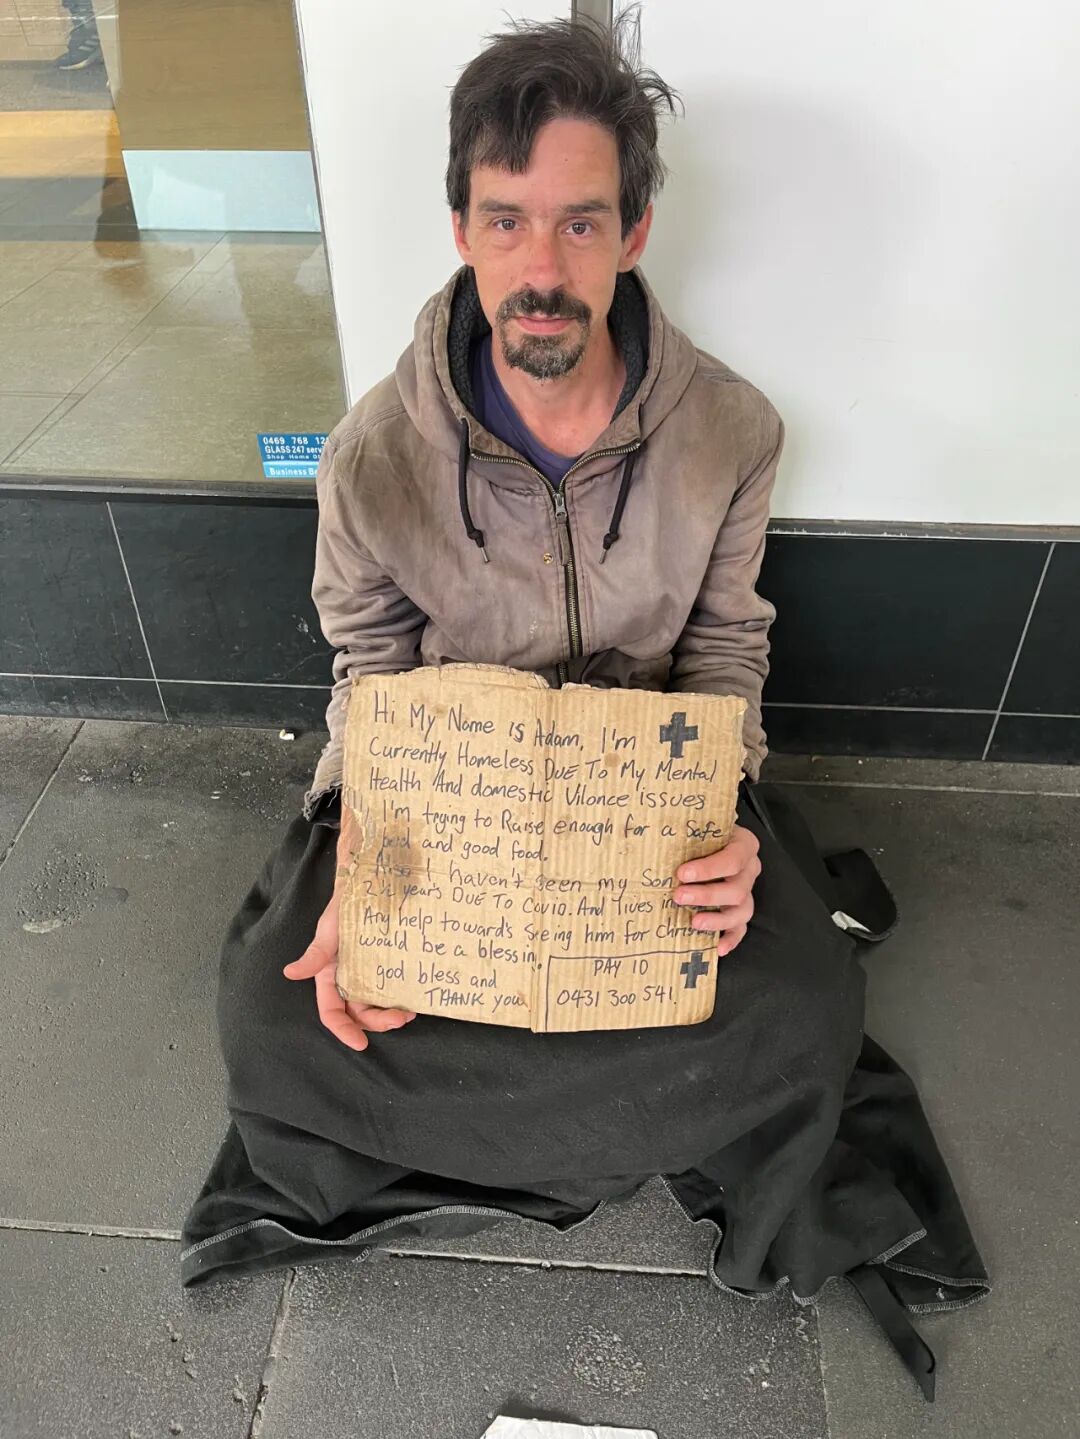 0469 768 12
GLASS 247 serv
Shop Home Of
Business Be
Hi My Name is Adam, I'm
Currently Homeless DUE To My Mental
Health And domestic Vilonce issues
I'm trying to Raise enough for a Safe
bed and good food.
Also I haven't seen my Son
2½ year's DUE To Covid. And lives in
Any help toward's seeing him for Christm
would be a blessing.
god bless and
THANK you
PAY ID
0431 300 541.